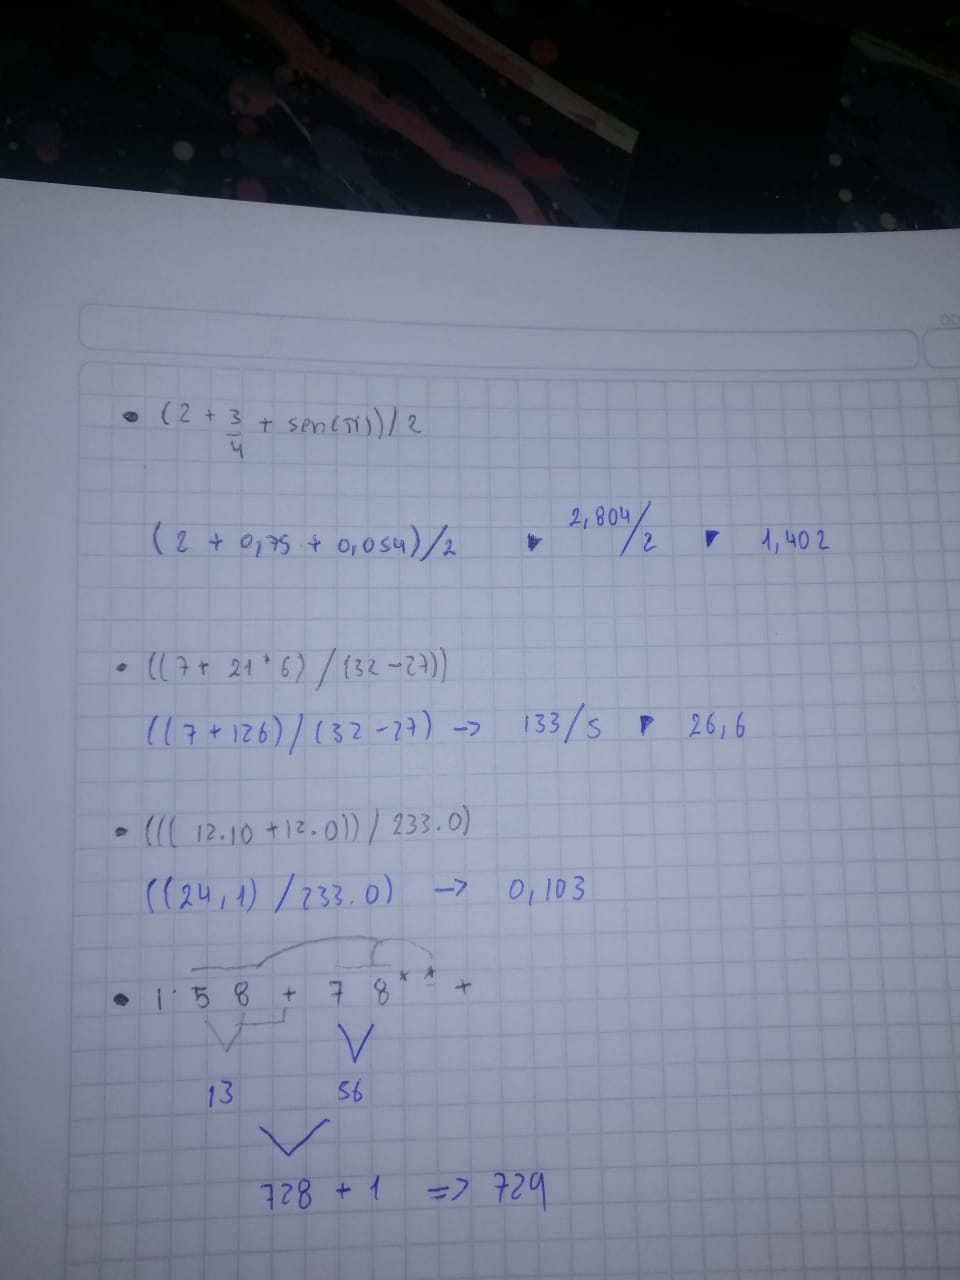 • (2 + 3/4 + sen(π))/2
(2 + 0,75 + 0,054)/2 ▾ 2,804/2 ▾ 1,402
• ((7 + 21*6) / (32-27))
((7 + 126) / (32-27) -> 133/5 ▾ 26,6
• ((( 12.10 + 12.0)) / 233.0)
((24,1) / 233.0) -> 0,103
• 1 5 8 + 7 8 * * +
13 56
728 + 1 => 729